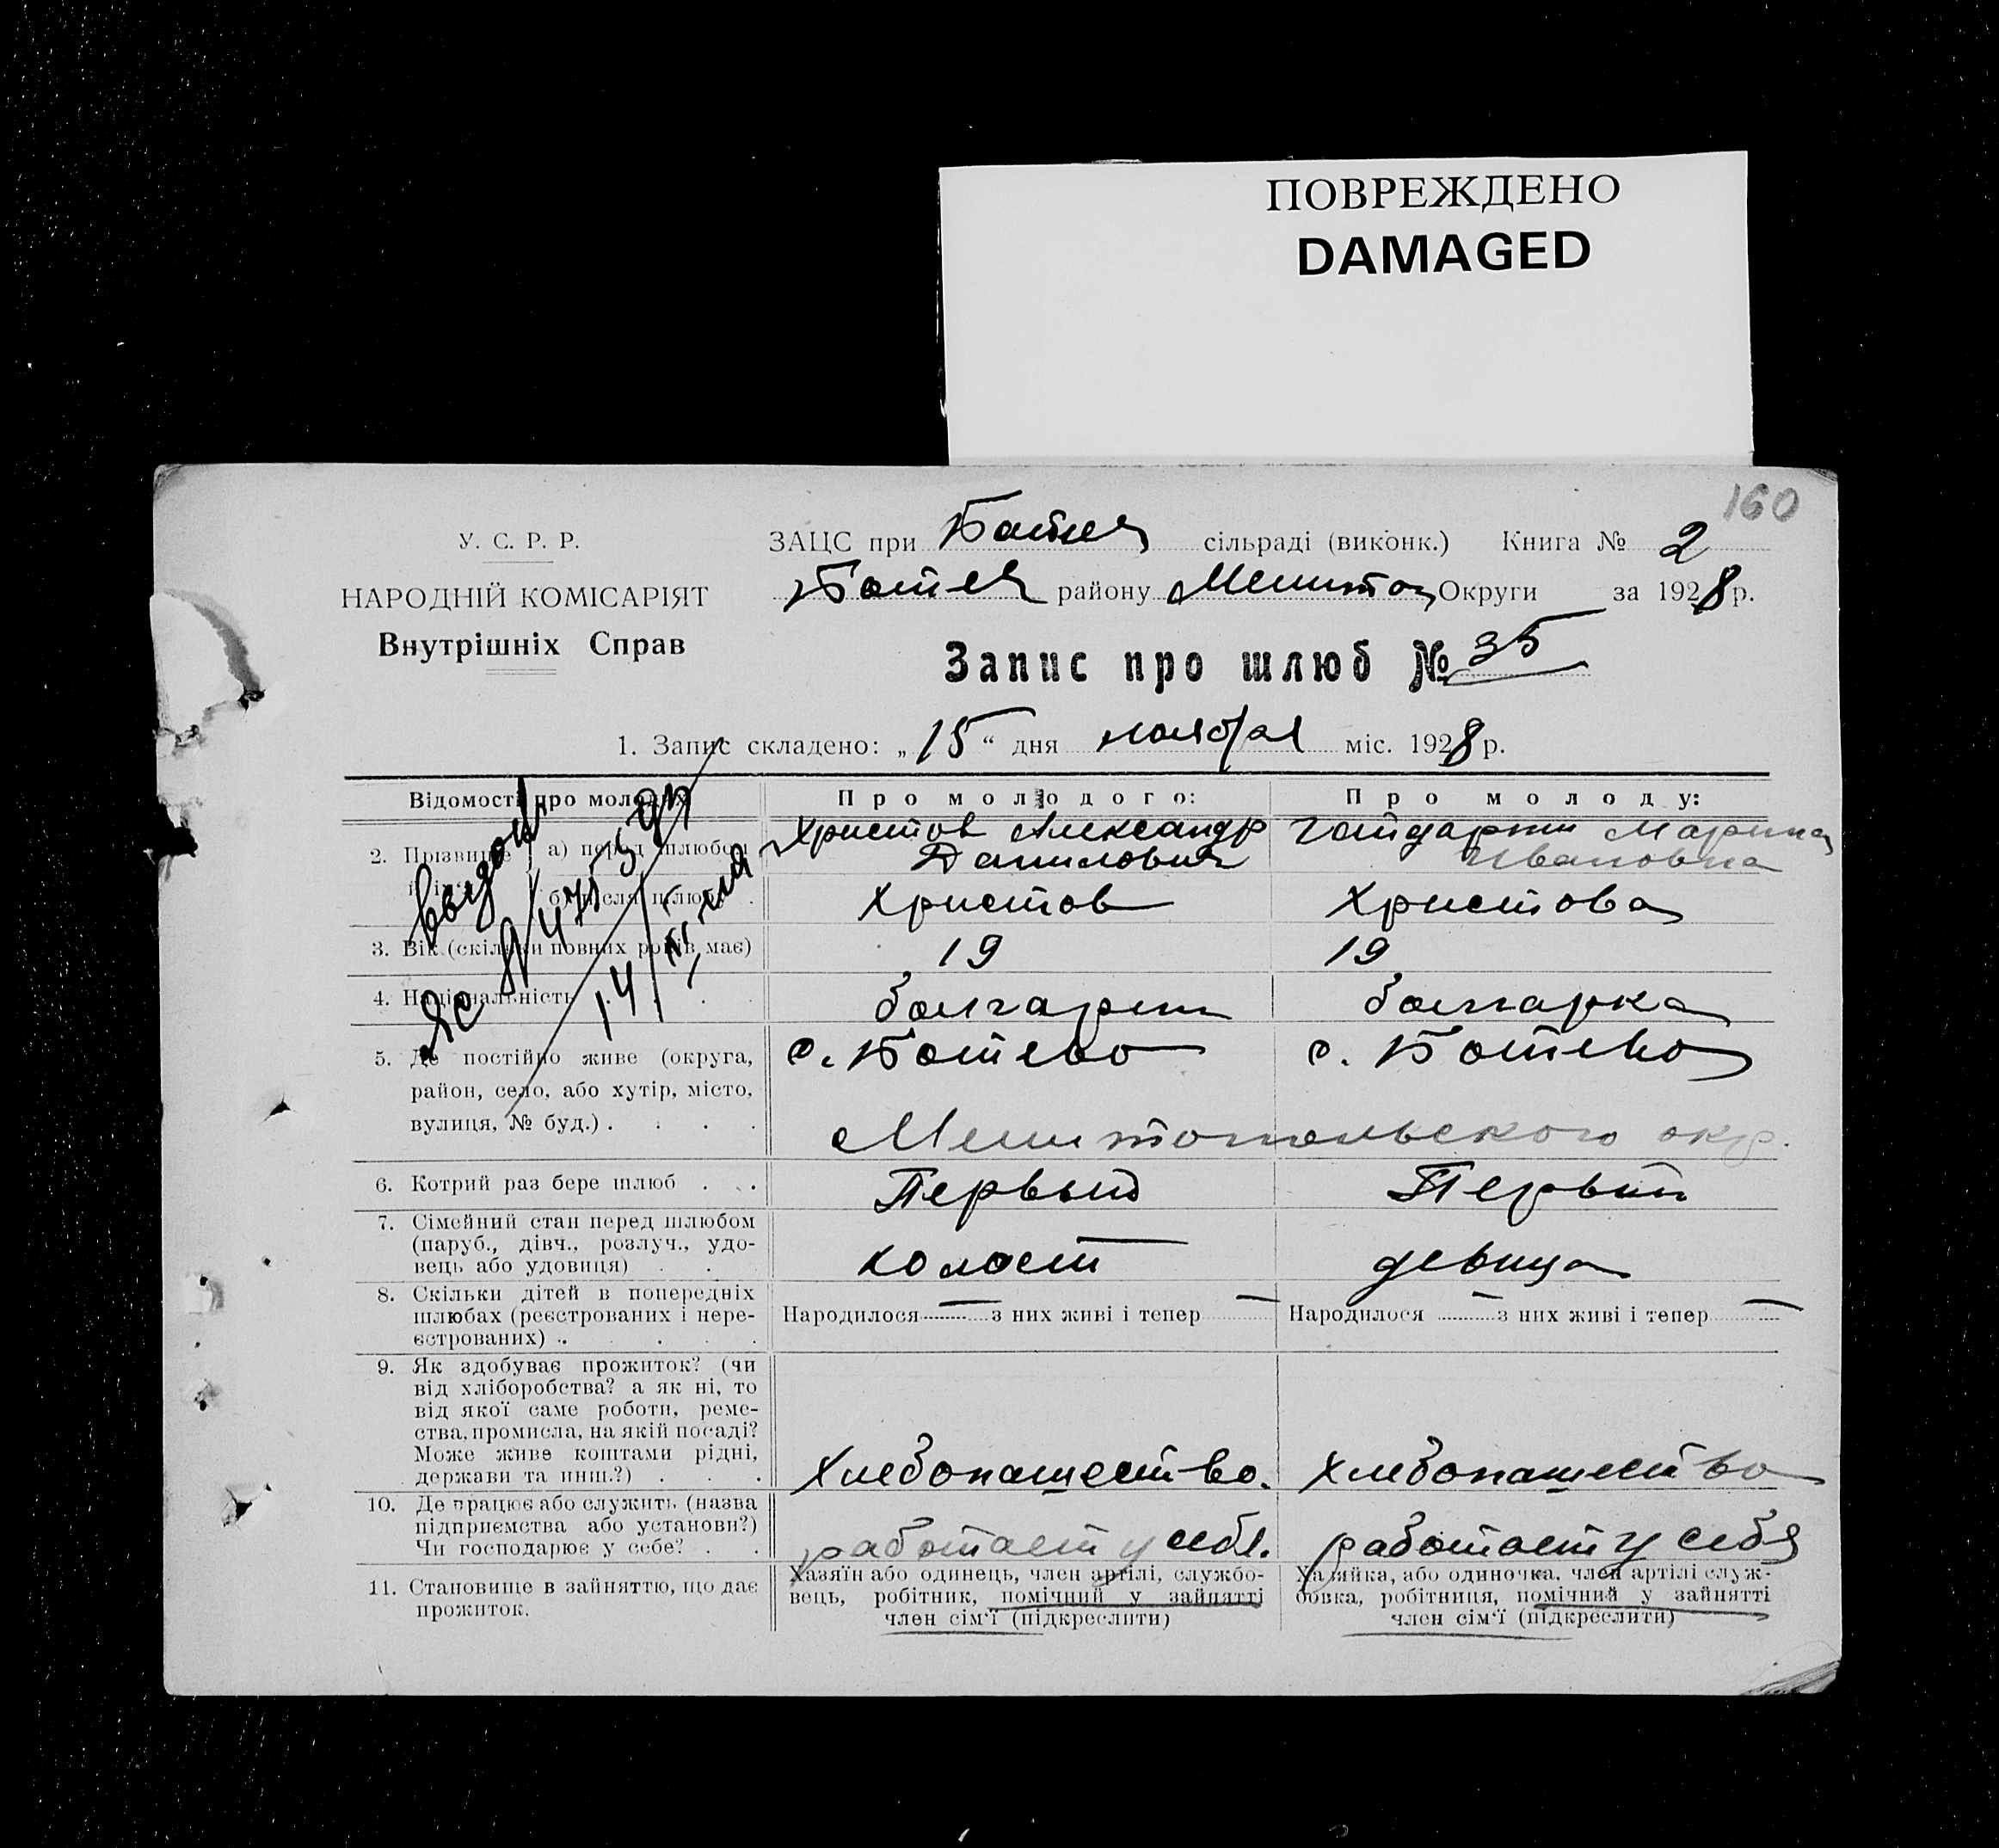 ПОВРЕЖДЕНО
DAMAGED
160
У. С. Р. Р.
НАРОДНІЙ КОМІСАРІЯТ
Внутрішніх Справ
ЗАЦС при сільраді (виконк.) Книга № 2
Ботев району Мелитоп Округи за 1928 р.
Запис про шлюб № 35
1. Запис складено: „15“ дня ноября міс. 1928 р.
Відомості про молодих Про молодого: Про молоду:
2. Прізвище а) перед шлюбом Христов Александр Данилович Гайдаржи Марина Ивановна
б) після шлюбу Христов Христова
3. Вік (скільки повних років має) 19 19
4. Національність болгарин болгарка
5. Де постійно живе (округа, с. Ботево с. Ботево
район, село, або хутір, місто,
вулиця, № буд.) . . . . Мелитопольского окр.
6. Котрий раз бере шлюб . . Первый Первый
7. Сімейний стан перед шлюбом
(паруб., дівч., розлуч., удо-
вець або удовиця) . . холост девица
8. Скільки дітей в попередніх
шлюбах (реєстрованих і нере- Народилося — з них живі і тепер — Народилося — з них живі і тепер —
єстрованих) . . . . .
9. Як здобуває прожиток? (чи
від хліборобства? а як ні, то
від якої саме роботи, реме-
ства, промисла, на якій посаді?
Може живе коштами рідні,
держави та инш.?) . . . Хлебопашество. Хлебопашество
10. Де працює або служить (назва
підприємства або установи?)
Чи господарює у себе? . . работает у себя. работает у себя
11. Становище в зайняттю, що дає
прожиток.
Хазяїн або одинець, член артілі, службо-
вець, робітник, помічний у зайнятті
член сім'ї (підкреслити)
Хазяйка, або одиночка, член артілі служ-
бовка, робітниця, помічний у зайнятті
член сім'ї (підкреслити)